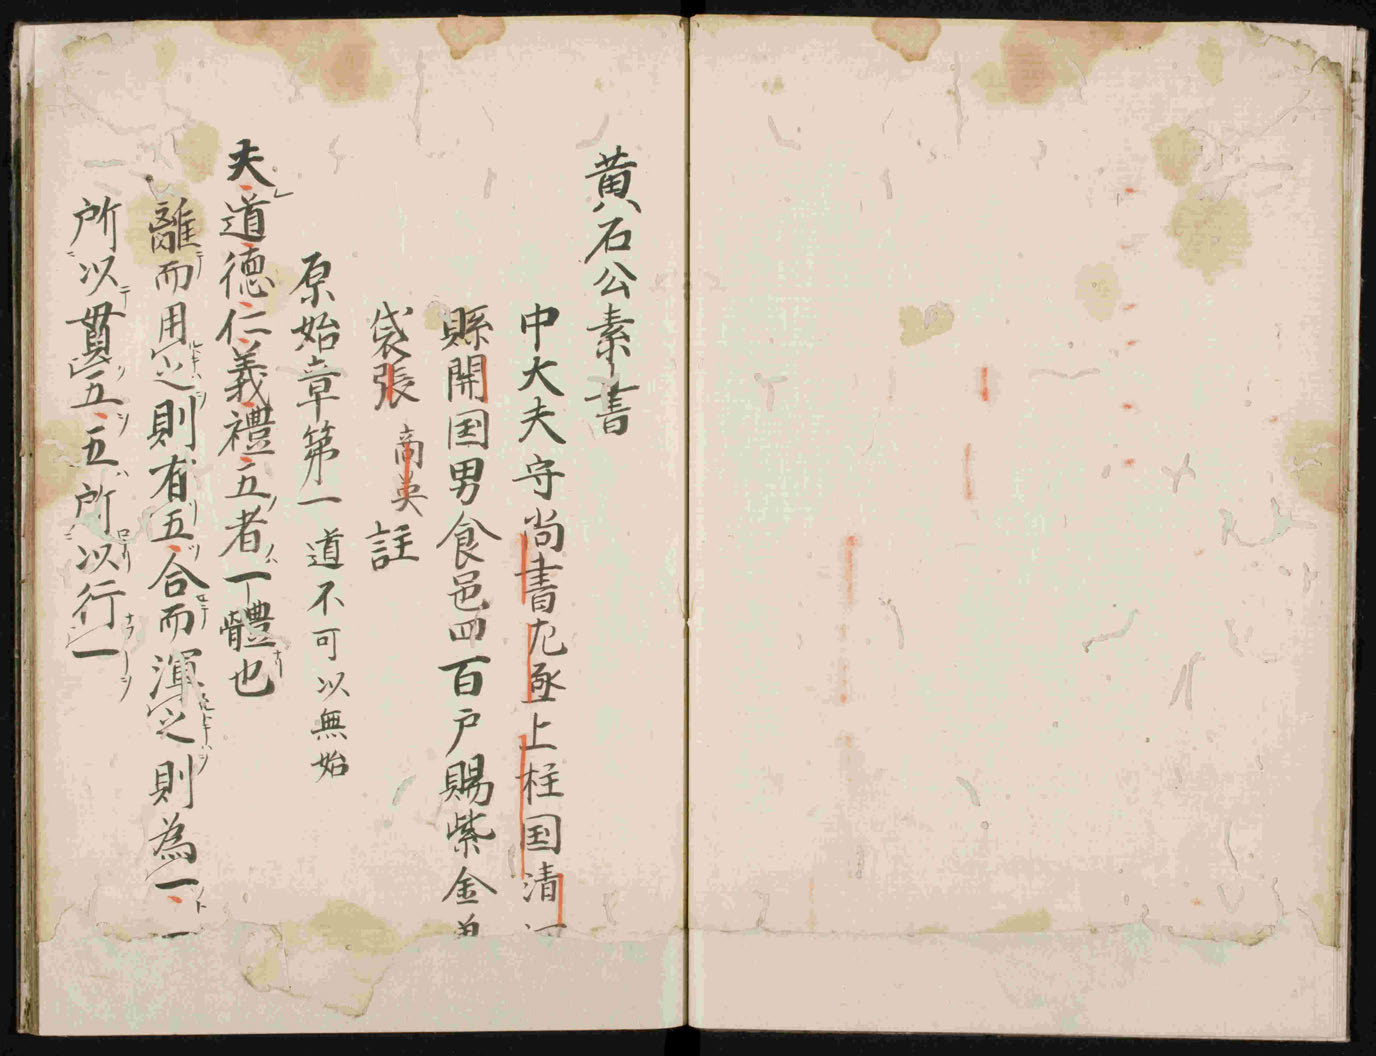 黄石公素書
中大夫守尚書左丞上柱国清
縣開国男食邑四百戸賜紫金
袋張商英註
原始章第一道不可以無始
夫道德仁義禮五者一體也
離而用之則有五合而渾之則為一
所以貫五五所以行一